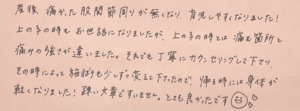 産後 痛かった股関節周りが無くなり、育児しやすくなりました!
上の子の時も お世話になりましたが、上の子の時とは 痛む箇所と
痛みの強さが違いました。それでも丁寧にカウンセリングして下さり
その時によって施術も少しずつ変えて下さったので、帰る時には身体が
軽くなりました! 疎い文章ですいません。とても良かったです